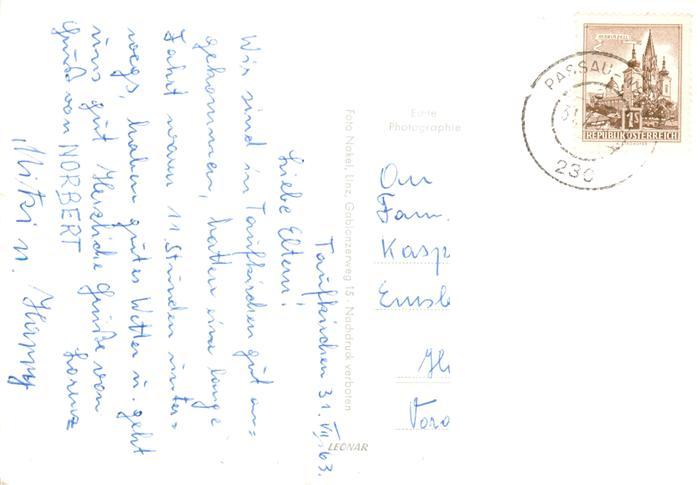 Taufkirchen 31.VII.63.
Liebe Eltern!
Wir sind in Taufkirchen gut an=
gekommen, hatten eine lange
Fahrt waren 11.Stunden unter=
wegs, haben gutes Wetter u. geht
uns gut Herzliche Grüße von
Gruß von NORBERT Lorenz
Mitzi u.
Echte
Photographie
Foto Nakel, Linz, Gablonzerweg 15 · Nachdruck verboten
LEONAR
An
Fam.
Kasp
Emsb
Voro
MARIAZELL
1S
REPUBLIK ÖSTERREICH
PASSAU
230